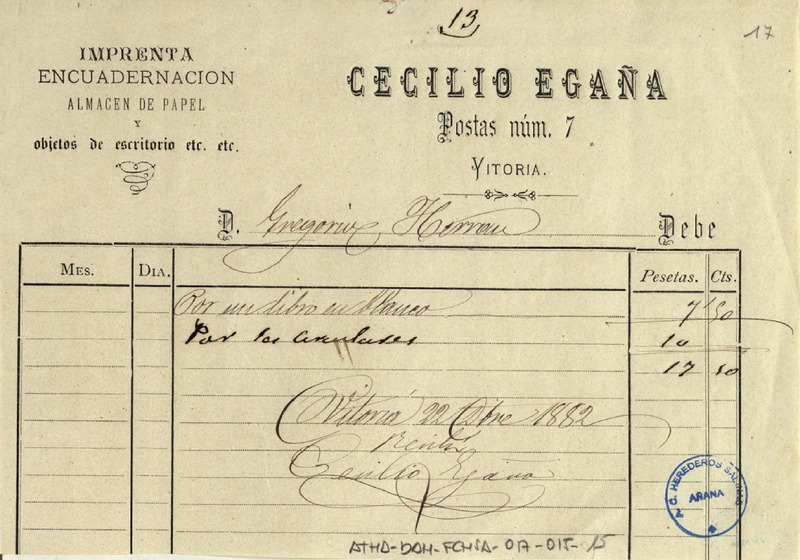 13
17
IMPRENTA
ENCUADERNACION
ALMACEN DE PAPEL
Y
objetos de escritorio etc. etc.
CECILIO EGAÑA
Postas núm. 7
VITORIA.
D. Gregorio Herran Debe
MES. DIA. Pesetas. Cts.
Por un libro en blanco 7 50
Por las circulares 10
17 50
Vitoria 22 Dbre 1882
Recibí
Cecilio Egaña
HEREDEROS SALINAS
AÑANA
ATHA-DAH-FCHSA-017-015-15